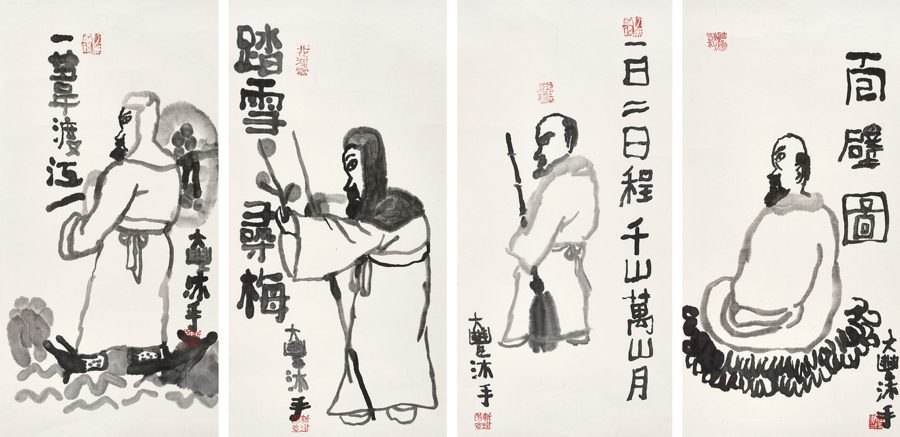 一葦渡江
大豐沐手
踏雪尋梅
大豐沐手
一日二日程千山萬山月
大豐沐手
面壁圖
大豐沐手